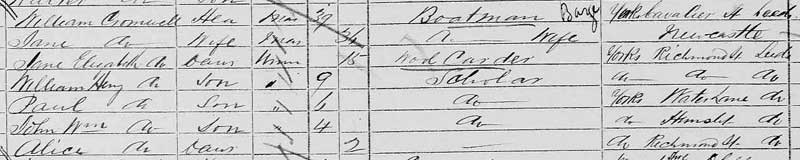 William Cromwell Hea Mar 39 Boatman Barge Yorks Cavalier St Leeds
Jane do Wife Mar 34 do Wife Newcastle
Jane Elizabth do Daur Unm 15 Wool Carder Yorks Richmond St Leeds
William Henry do Son " 9 Scholar do do do
Paul do Son " 6 do Yorks Water Lane do
John Wm do Son " 4 do do do
Alice do Daur " 2 do Richmond St do